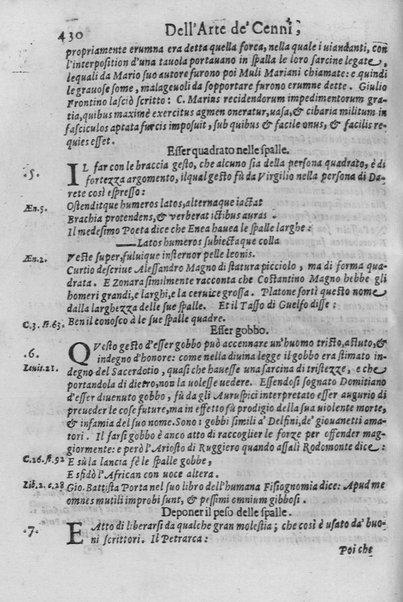 430 Dell'Arte de' Cenni,
propriamente erumna era detta quella forca, nella quale i uiandanti, con
l'interposition d'una tauola portauano in spalla le loro sarcine legate,
lequali da Mario suo autore furono poi Muli Mariani chiamate: e quindi
le grauose some, malageuoli da sopportare furono erumne dette. Giulio
Frontino lasciò scritto: C. Marius recidendorum impedimentorum gra-
tia, quibus maximè exercitus agmen oneratur, uasa, & cibaria militum in
fasciculos aptata furcis imposuit, sub quibus & facile onus, & facilis re-
quies esset.
Esser quadrato nelle spalle.
.5. IL far con le braccia gesto, che alcuno sia della persona quadrato, è di
fortezza argomento, ilqual gesto fù da Virgilio nella persona di Da-
rete così espresso:
Æn.5. Ostenditque humeros latos, alternaque iactat
Brachia protendens, & verberat ictibus auras.
Il medesimo Poeta dice che Enea hauea le spalle larghe:
—Latos humeros subiectaque colla
Æn.2. Veste super, fuluique insternor pelle leonis.
Curtio descriue Alessandro Magno di statura picciolo, ma di forma qua-
drata. E Zonara similmente racconta che Costantino Magno hebbe gli
homeri grandi, e larghi, e la ceruice grossa. Platone sortì questo nome
dalla larghezza delle sue spalle. Et il Tasso di Guelfo disse:
C.3. st.63. Ben il conosco à le sue spalle quadre.
Esser gobbo.
.6. QVesto gesto d'esser gobbo può accennare un'huomo tristo, astuto, &
indegno d'honore: come nella diuina legge il gobbo era stimato in-
Leuit.21. degno del Sacerdotio, quasi che hauesse una sarcina di tristezze, e che
portandola di dietro, non la uolesse uedere. Essendosi sognato Domitiano
d'esser diuenuto gobbo, fù da gli Auruspici interpretato esser augurio di
preueder le cose future, ma in effetto fù prodigio della sua uiolente morte,
& infamia del suo nome. Sono i gobbi simili a' Delfini, de' giouanetti ama-
tori. Il farsi gobbo è anco atto di raccoglier le forze per offender mag-
giormente: e però l'Ariosto di Ruggiero quando assalì Rodomonte dice:
C.26. st.52 E sù la lancia fè le spalle gobbe,
E sfidò l'African con uoce altera.
Lib.2. c.28 Gio. Battista Porta nel suo libro dell'humana Fisiognomia dice: Apud me
omnes mutili improbi sunt, & pessimi omnium gibbosi.
Deponer il peso delle spalle.
.7. E Atto di liberarsi da qualche gran molestia; che così è usato da' buo-
ni scrittori. Il Petrarca:
Poi che